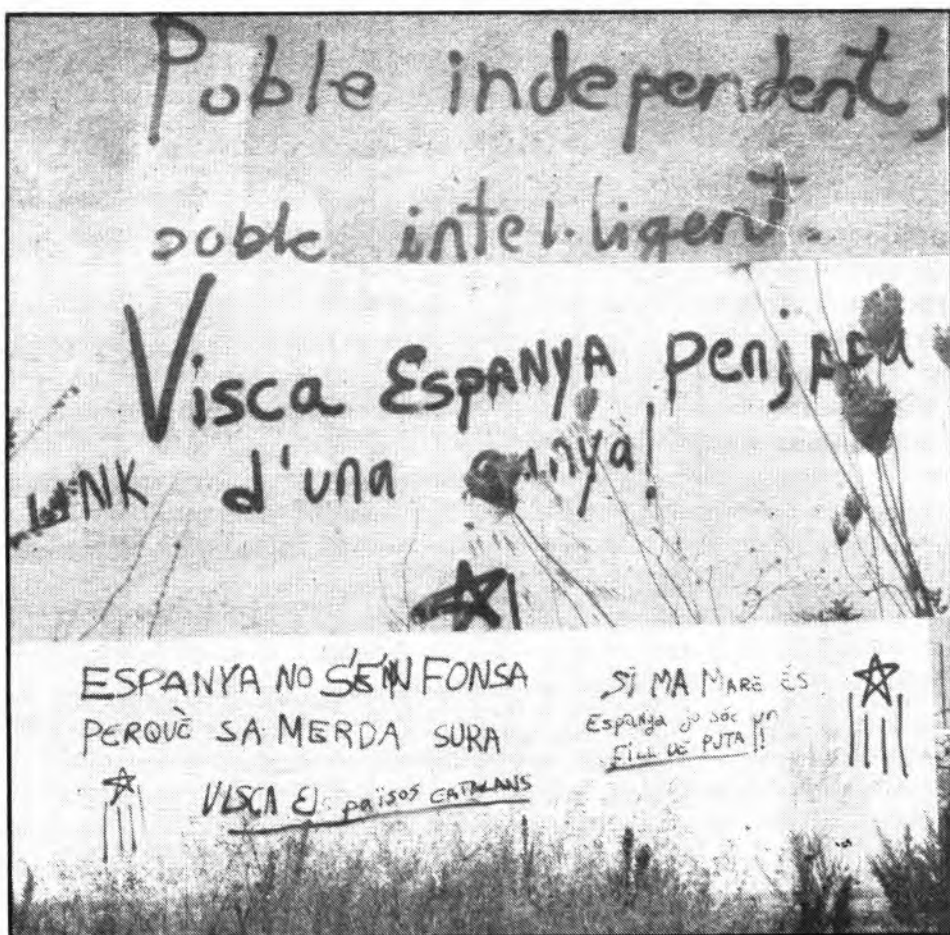 Poble independent,
poble intel·ligent.
Visca Espanya penjada
d'una canya!
ESPANYA NO S'ENFONSA
PERQUÈ SA MERDA SURA
VISCA Els països CATALANS
SI MA MARE ÉS
Espanya jo sóc un
FILL DE PUTA!!